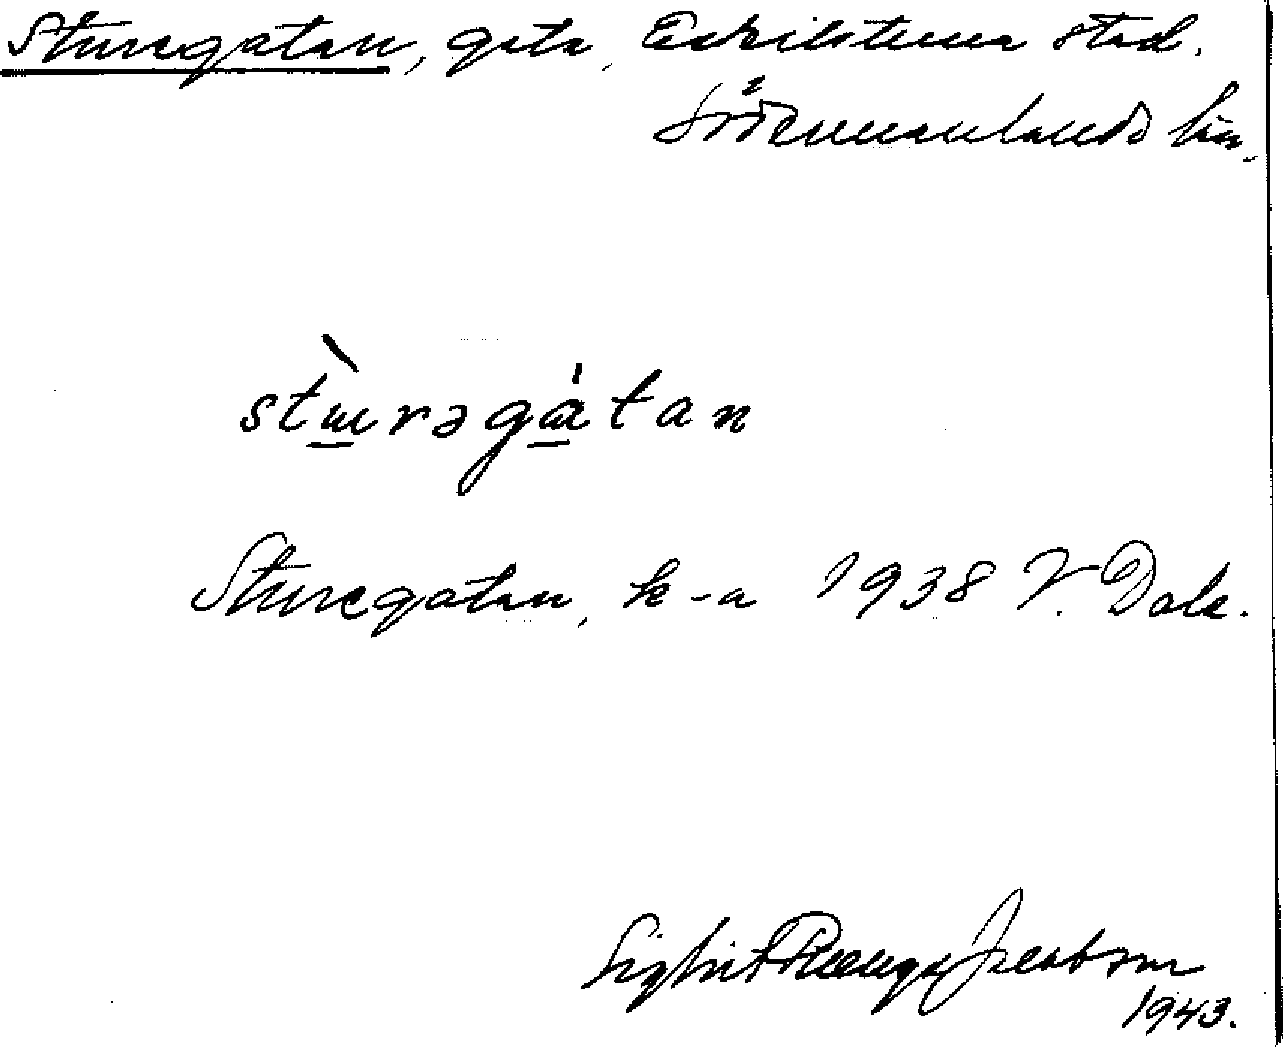 Sturegatan, gata, Eskilstuna stad.
Södermanlands län.
stɯ̀rəgátan
Sturegatan, k-a 1938 V. Dala.
Sigbrit Plænge Jacobson
1943.